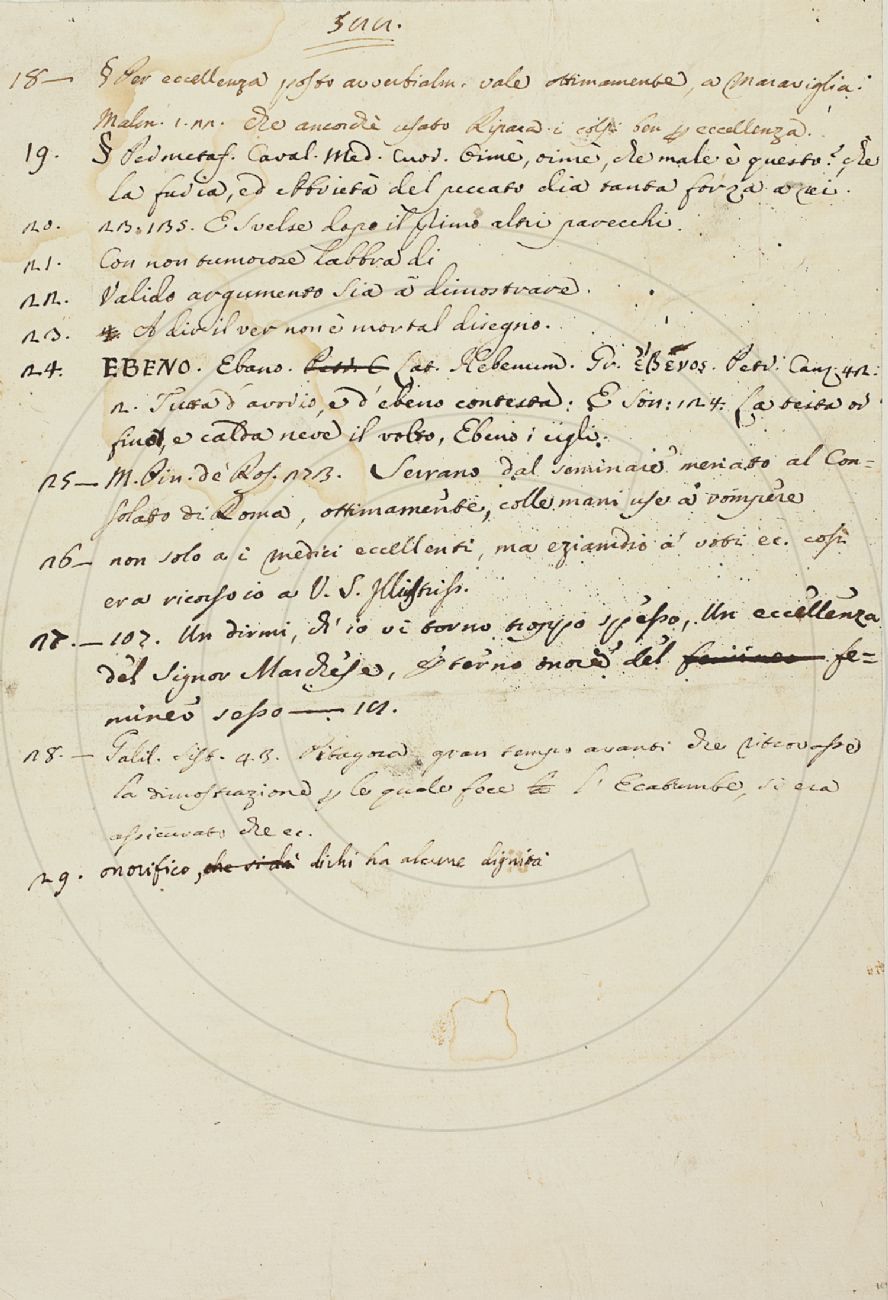 522.
18— § Per eccellenza posto avverbialm. vale ottimamente, a maraviglia.
Malm. 1. 22. che ancorchè usato Ripara i colpi ben p eccellenza.
19. § Per metaf. Caval. Med. Cuor. Oimè, oimè, che male è questo? che
la furia, ed ebrietà del peccato dia tanta forza a rei.
20. 23. 135. E svelse dopo il primo altri parecchi.
21. Con non tumorose labbra di
22. Valido argumento sia a dimostrare.
23. A dir il ver non è mortal disegno.
24. EBENO. Ebano. Petr. C Lat. Hebenum. Gr. ἔβενος. Petr. Canz. 42:
2. Tutta d'avorio, e d'ebeno contesta: E Son: 124. La testa or
fino, e calda neve il volto, Ebeno i cigli.
25— M. Pin. de Ros. 273. Serrano dal seminare menato al Con=
solato di Roma, ottimamente, colle mani use a rompere
26— non solo a i medici eccellenti, ma eziandio a' voti ec. così
era ricorso io a V. S. Illustriss.
27.— 107. Un dirmi, ch' io vi torno troppo spesso, Un eccellenza
del Signor Marchese, eterno onore del femineo fe=
mineo sesso — 101.
28.— Galil. Sist. 43. Pitagora gran tempo avanti che ritrovasse
la dimostrazione p la quale fece la l' Ecatumbe, si era
assicurato che ec.
29. onorifico, che si dà dichi ha alcune dignità